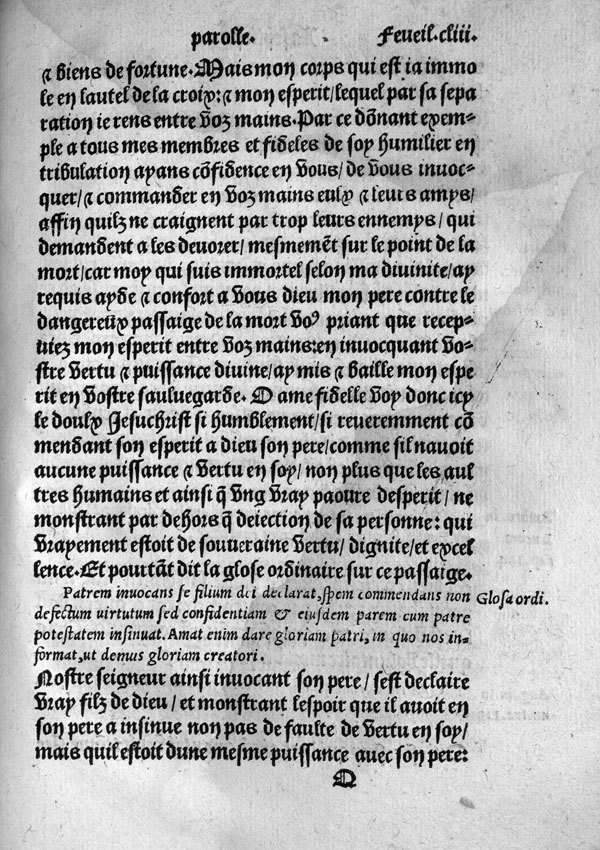 parolle. Feueil.cliii.
⁊ biens de fortune. Mais mon corps qui est ia immo
le en lautel de la croix: ⁊ mon esperit/lequel par sa sepa
ration ie rens entre voz mains. Par ce dõnant exem-
ple a tous mes membres et fideles de soy humilier en
tribulation ayans cõfidence en vous/de vous inuoc-
quer/⁊ commander en voz mains eulx ⁊ leurs amys/
affin quilz ne craignent par trop leurs ennemys/ qui
demandent a les deuorer/ mesmemẽt sur le point de la
mort/car moy qui suis immortel selon ma diuinite/ay
requis ayde ⁊ confort a vous dieu mon pere contre le
dangereux passaige de la mort voꝰ priant que recep-
uiez mon esperit entre voz mains:en inuocquant vo-
stre vertu ⁊ puissance diuine/ay mis ⁊ baille mon espe
rit en vostre sauluegarde. O ame fidelle voy donc icy
le doulx Jesuchrist si humblement/si reueremment cõ
mendant son esperit a dieu son pere/comme sil nauoit
aucune puissance ⁊ vertu en soy/ non plus que les aul
tres humains et ainsi q̃ vng vray paoure desperit/ ne
monstrant par dehors q̃ deiection de sa personne: qui
vrayement estoit de souueraine vertu/ dignite/et excel
lence. Et pourtãt dit la glose ordinaire sur ce passaige.
Patrem inuocans se filium dei declarat, spem commendans non Glosa ordi.
defectum virtutum sed confidentiam & eiusdem parem cum patre
potestatem insinuat. Amat enim dare gloriam patri, in quo nos in-
format, ut demus gloriam creatori.
Nostre seigneur ainsi inuocant son pere/ sest declaire
vray filz de dieu/ et monstrant lespoir que il auoit en
son pere a insinue non pas de faulte de vertu en soy/
mais quil estoit dune mesme puissance auec son pere: